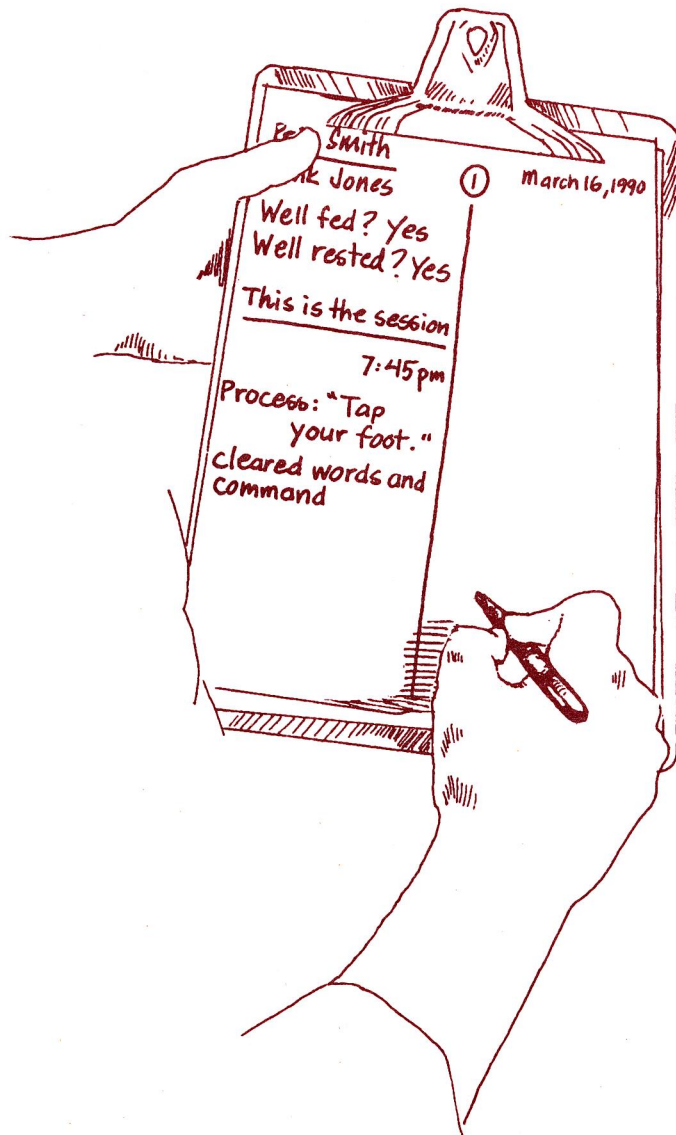 Smith
Jones
① March 16, 1990
Well fed? Yes
Well rested? Yes
This is the session
7:45pm
Process: "Tap
your foot."
cleared words and
command